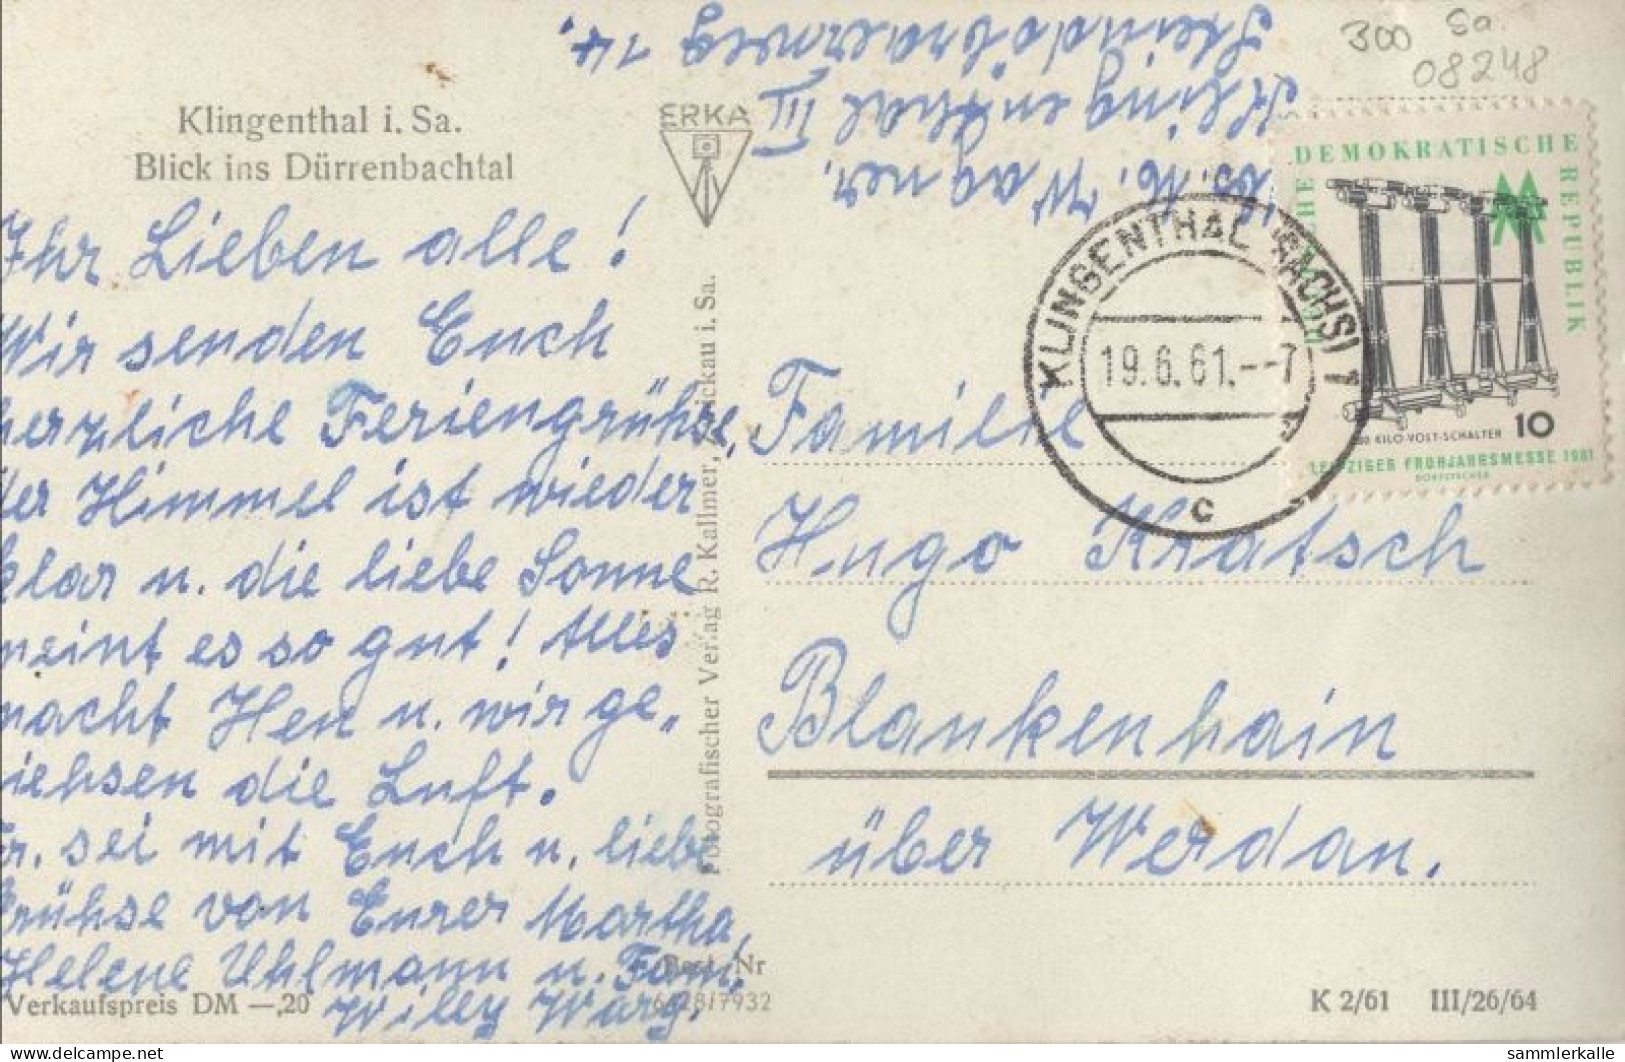 300 Sa.
08248
b. M. Wagner.
Klingenthal III
Steindöbraerweg 14.
Klingenthal i. Sa.
Blick ins Dürrenbachtal
ERKA
Ihr Lieben alle!
Wir senden Euch
herzliche Feriengrühse,
der Himmel ist wieder
klar u. die liebe Sonne
meint es so gut! Alles
macht Heu u. wir ge„
niehsen die Luft.
sei mit Euch u. liebe
Grühse von Eurer Martha,
Helene Uhlmann u. Fam.
Willy Warg.
Verkaufspreis DM —,20
Fotografischer Verlag R. Kallmer, Zwickau i. Sa.
Best. Nr
7932
DEMOKRATISCHE
REPUBLIK
KILO-VOLT-SCHALTER 10
LEIPZIGER FRÜHJAHRSMESSE 1961
KLINGENTHAL (SACHS) 1
19.6.61.--7
c
Familie
Hugo Kratsch
Blankenhain
über Werdau.
K 2/61 III/26/64
sammlerkalle